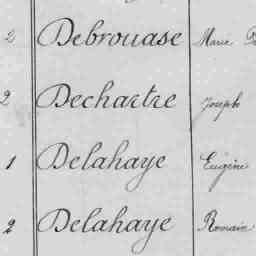 2 Debrouase Marie
2 Dechartre Joseph
1 Delahaye Eugène
2 Delahaye Romain